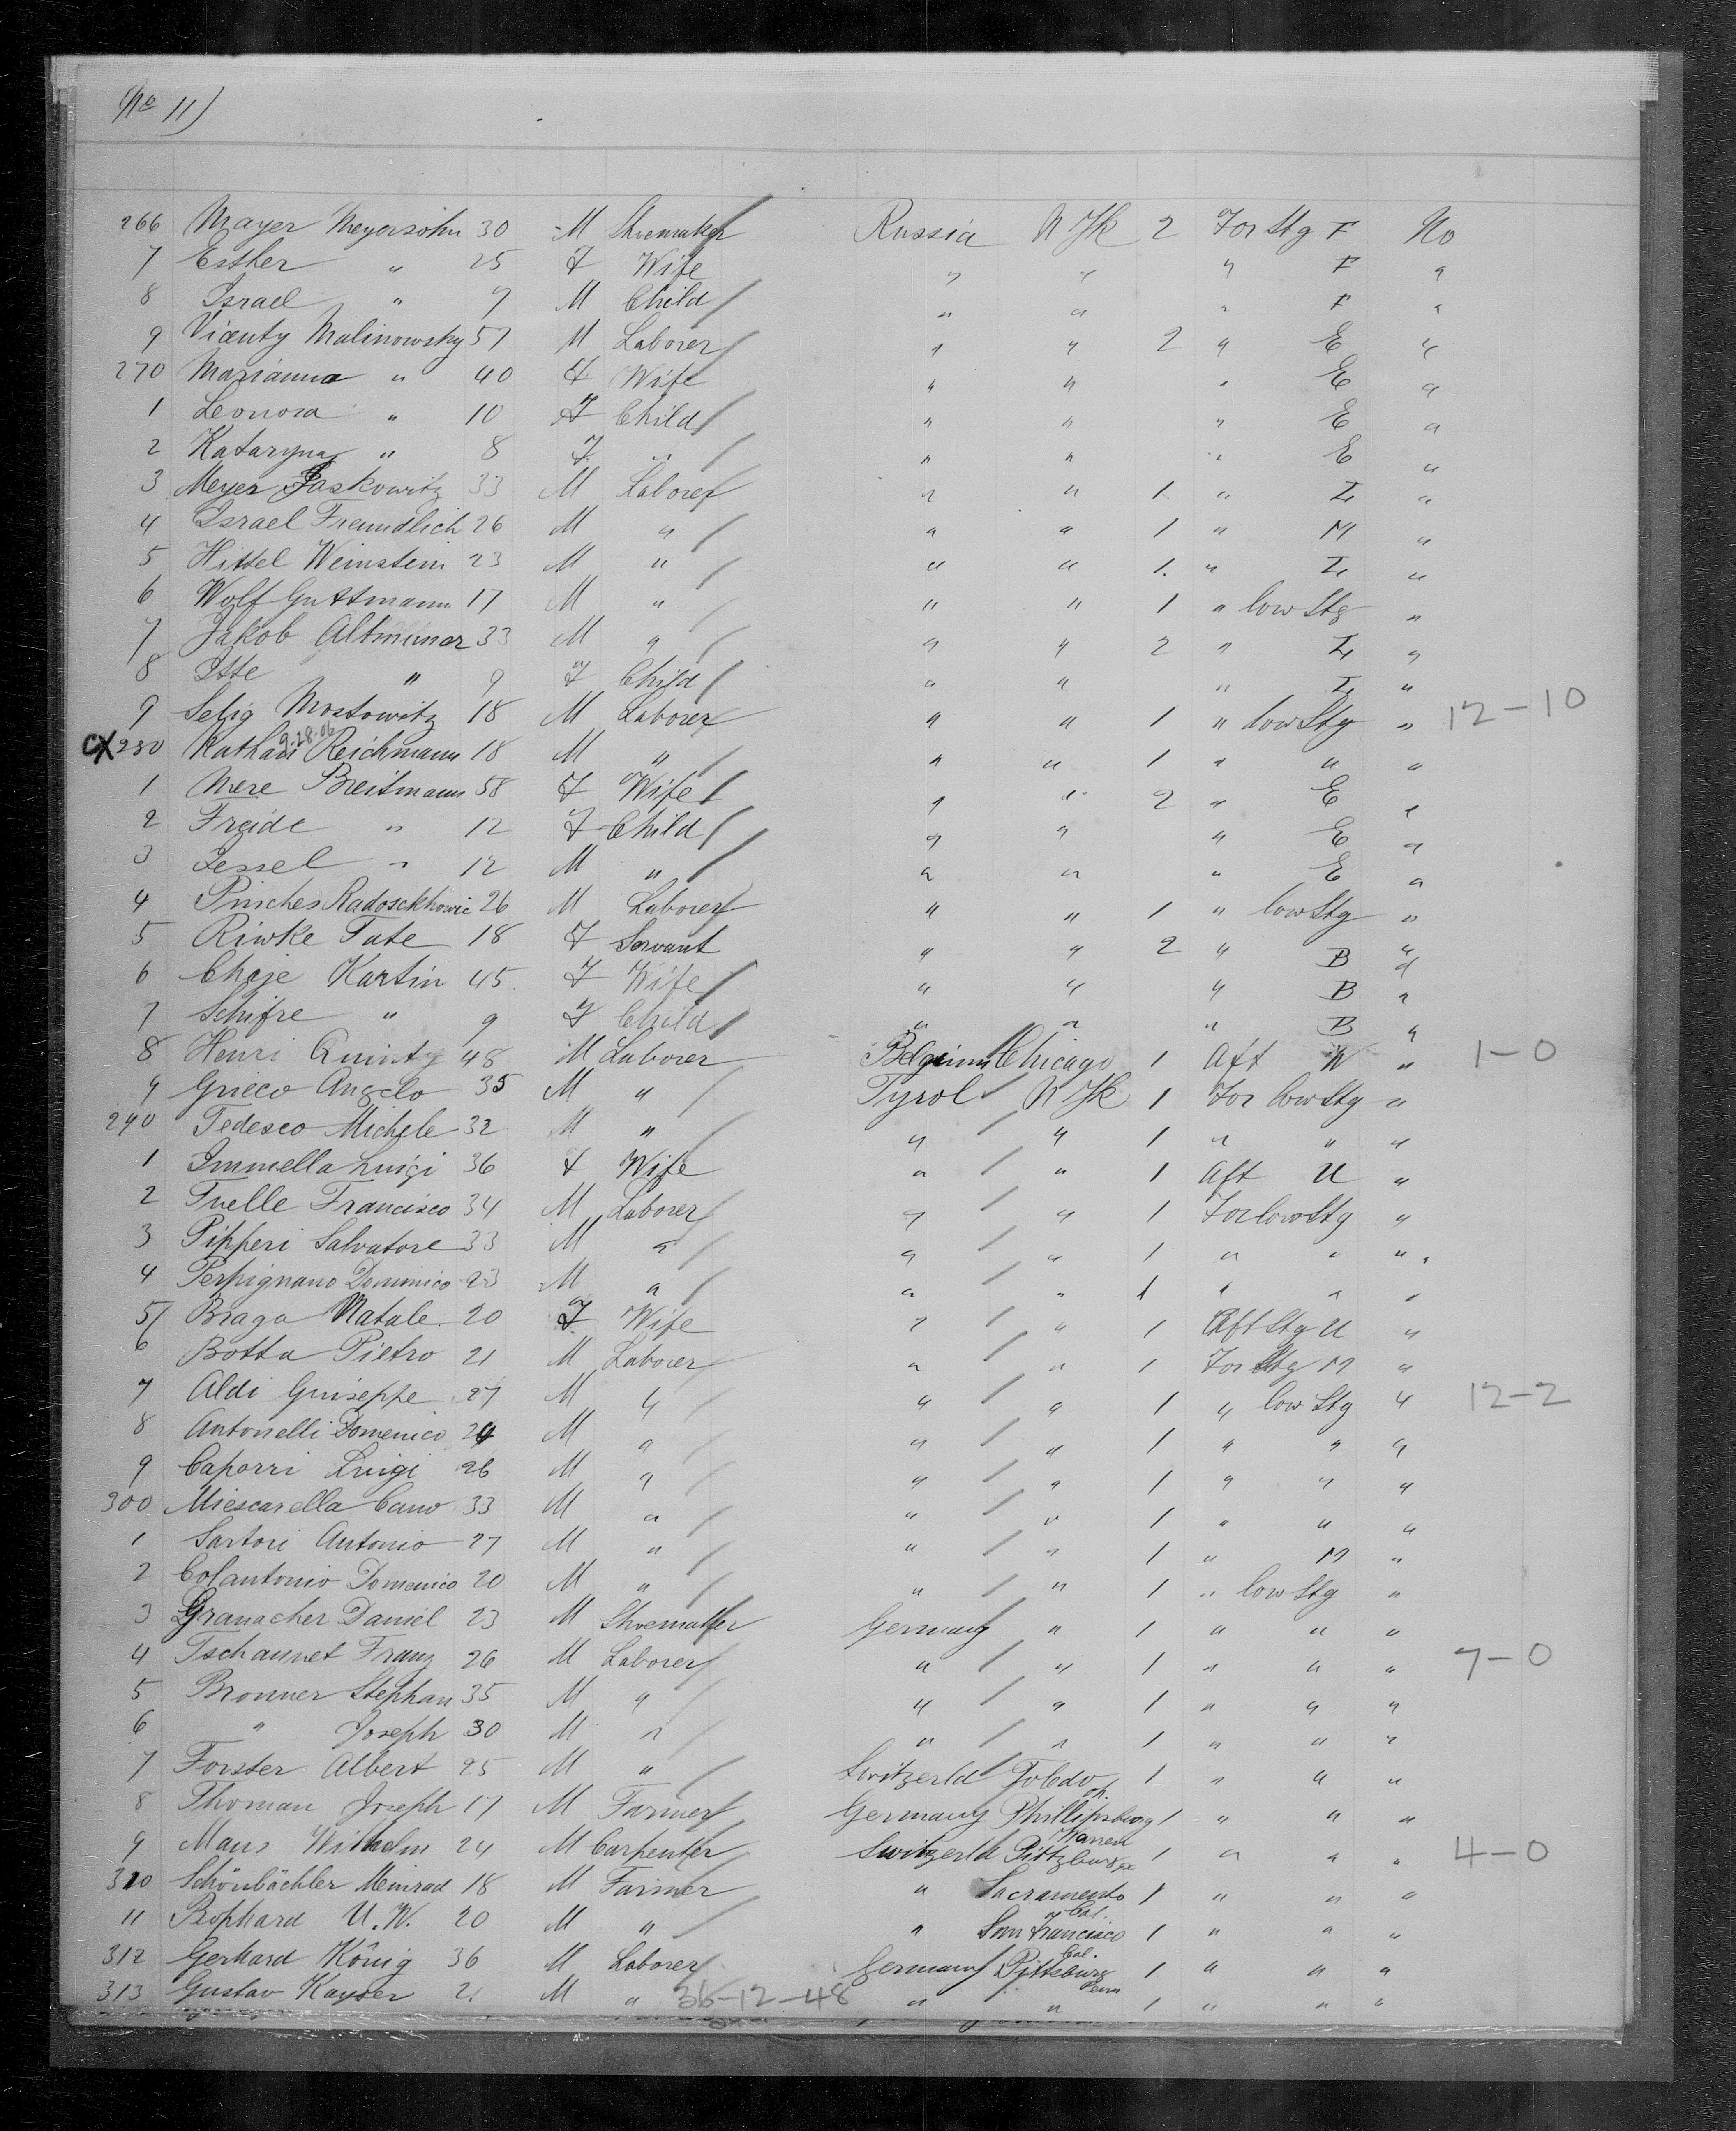 (No 11)
266 Mayer Meyersohn 30 M Shoemaker Russia N Yk 2 For Stg F No
7 Esther " 25 F Wife " " " F "
8 Israel " 7 M Child " " " F "
9 Vicenty Malinowsky 51 M Laborer " " 2 " E "
270 Marianna " 40 F Wife " " " E "
1 Leonora " 10 F Child " " " E "
2 Kataryna " 8 F " " " " E "
3 Meyer Jaskowitz 33 M Laborer " " 1 " "
4 Israel Freundlich 26 M " " " 1 " M "
5 Hittel Weinstein 23 M " " " 1 " "
6 Wolf Guttmann 17 M " " " 1 " low Stg "
7 Jakob 33 M " " " 2 " "
8 Itte " 9 F Child " " " "
9 Selig Mostowitz 18 M Laborer " " 1 " low Stg " 12-10
CX 280 Reichmann 9-28-06 18 M " " " 1 " " "
1 Mere Breitmann 58 F Wife " " 2 " E "
2 Freide " 12 F Child " " " E "
3 Jessel " 12 M " " " " E "
4 Pinches Radosckhowic 26 M Laborer " " 1 " low Stg "
5 Riwke Tate 18 F Servant " " 2 " B "
6 Chaje Kartin 45 F Wife " " " B "
7 Schifre " 9 F Child " " " B "
8 Henri Quinty 48 M Laborer Belgium Chicago 1 Aft W " 1-0
9 Grieco Angelo 35 M " Tyrol N Yk 1 For low Stg "
290 Tedesco Michele 32 M " " " 1 " " "
1 Immella Luigi 36 F Wife " " 1 Aft U "
2 Tuelle Francisco 34 M Laborer " " 1 For low Stg "
3 Pipperi Salvatore 33 M " " " 1 " " "
4 Perpignano Dominico 23 M " " " 1 " " "
5 Braga Natale 20 F Wife " " 1 Aft Stg U "
6 Botta Pietro 21 M Laborer " " 1 For Stg M "
7 Aldi Guiseppe 27 M " " " 1 " low Stg " 12-2
8 Antonelli Domenico 24 M " " " 1 " " "
9 Caporri Luigi 26 M " " " 1 " " "
300 Miescarella Cano 33 M " " " 1 " " "
1 Sartori Antonio 27 M " " " 1 " M "
2 Colantonio Domenico 20 M " " " 1 " low Stg "
3 Granacher Daniel 23 M Shoemaker Germany " 1 " " "
4 Tschannet Franz 26 M Laborer " " 1 " " " 7-0
5 Bronner Stephan 35 M " " " 1 " " "
6 " Joseph 30 M " " " 1 " " "
7 Forster Albert 25 M " Switzerld Toledo 1 " " "
oh.
8 Thoman Joseph 17 M Farmer Germany Phillipsburg 1 " " "
9 Maus Wilhelm 24 M Carpenter Switzerld Pittzburg 1 " " " 4-0
310 Schönbächler Meinrad 18 M Farmer " Sacramento 1 " " "
Cal.
11 Bophard U. W. 20 M " " San Francisco 1 " " "
Cal.
312 Gerhard König 36 M Laborer Germany Pittsburg 1 " " "
Penn
313 Gustav Kayser 21 M " 36-12-48 " " 1 " " "